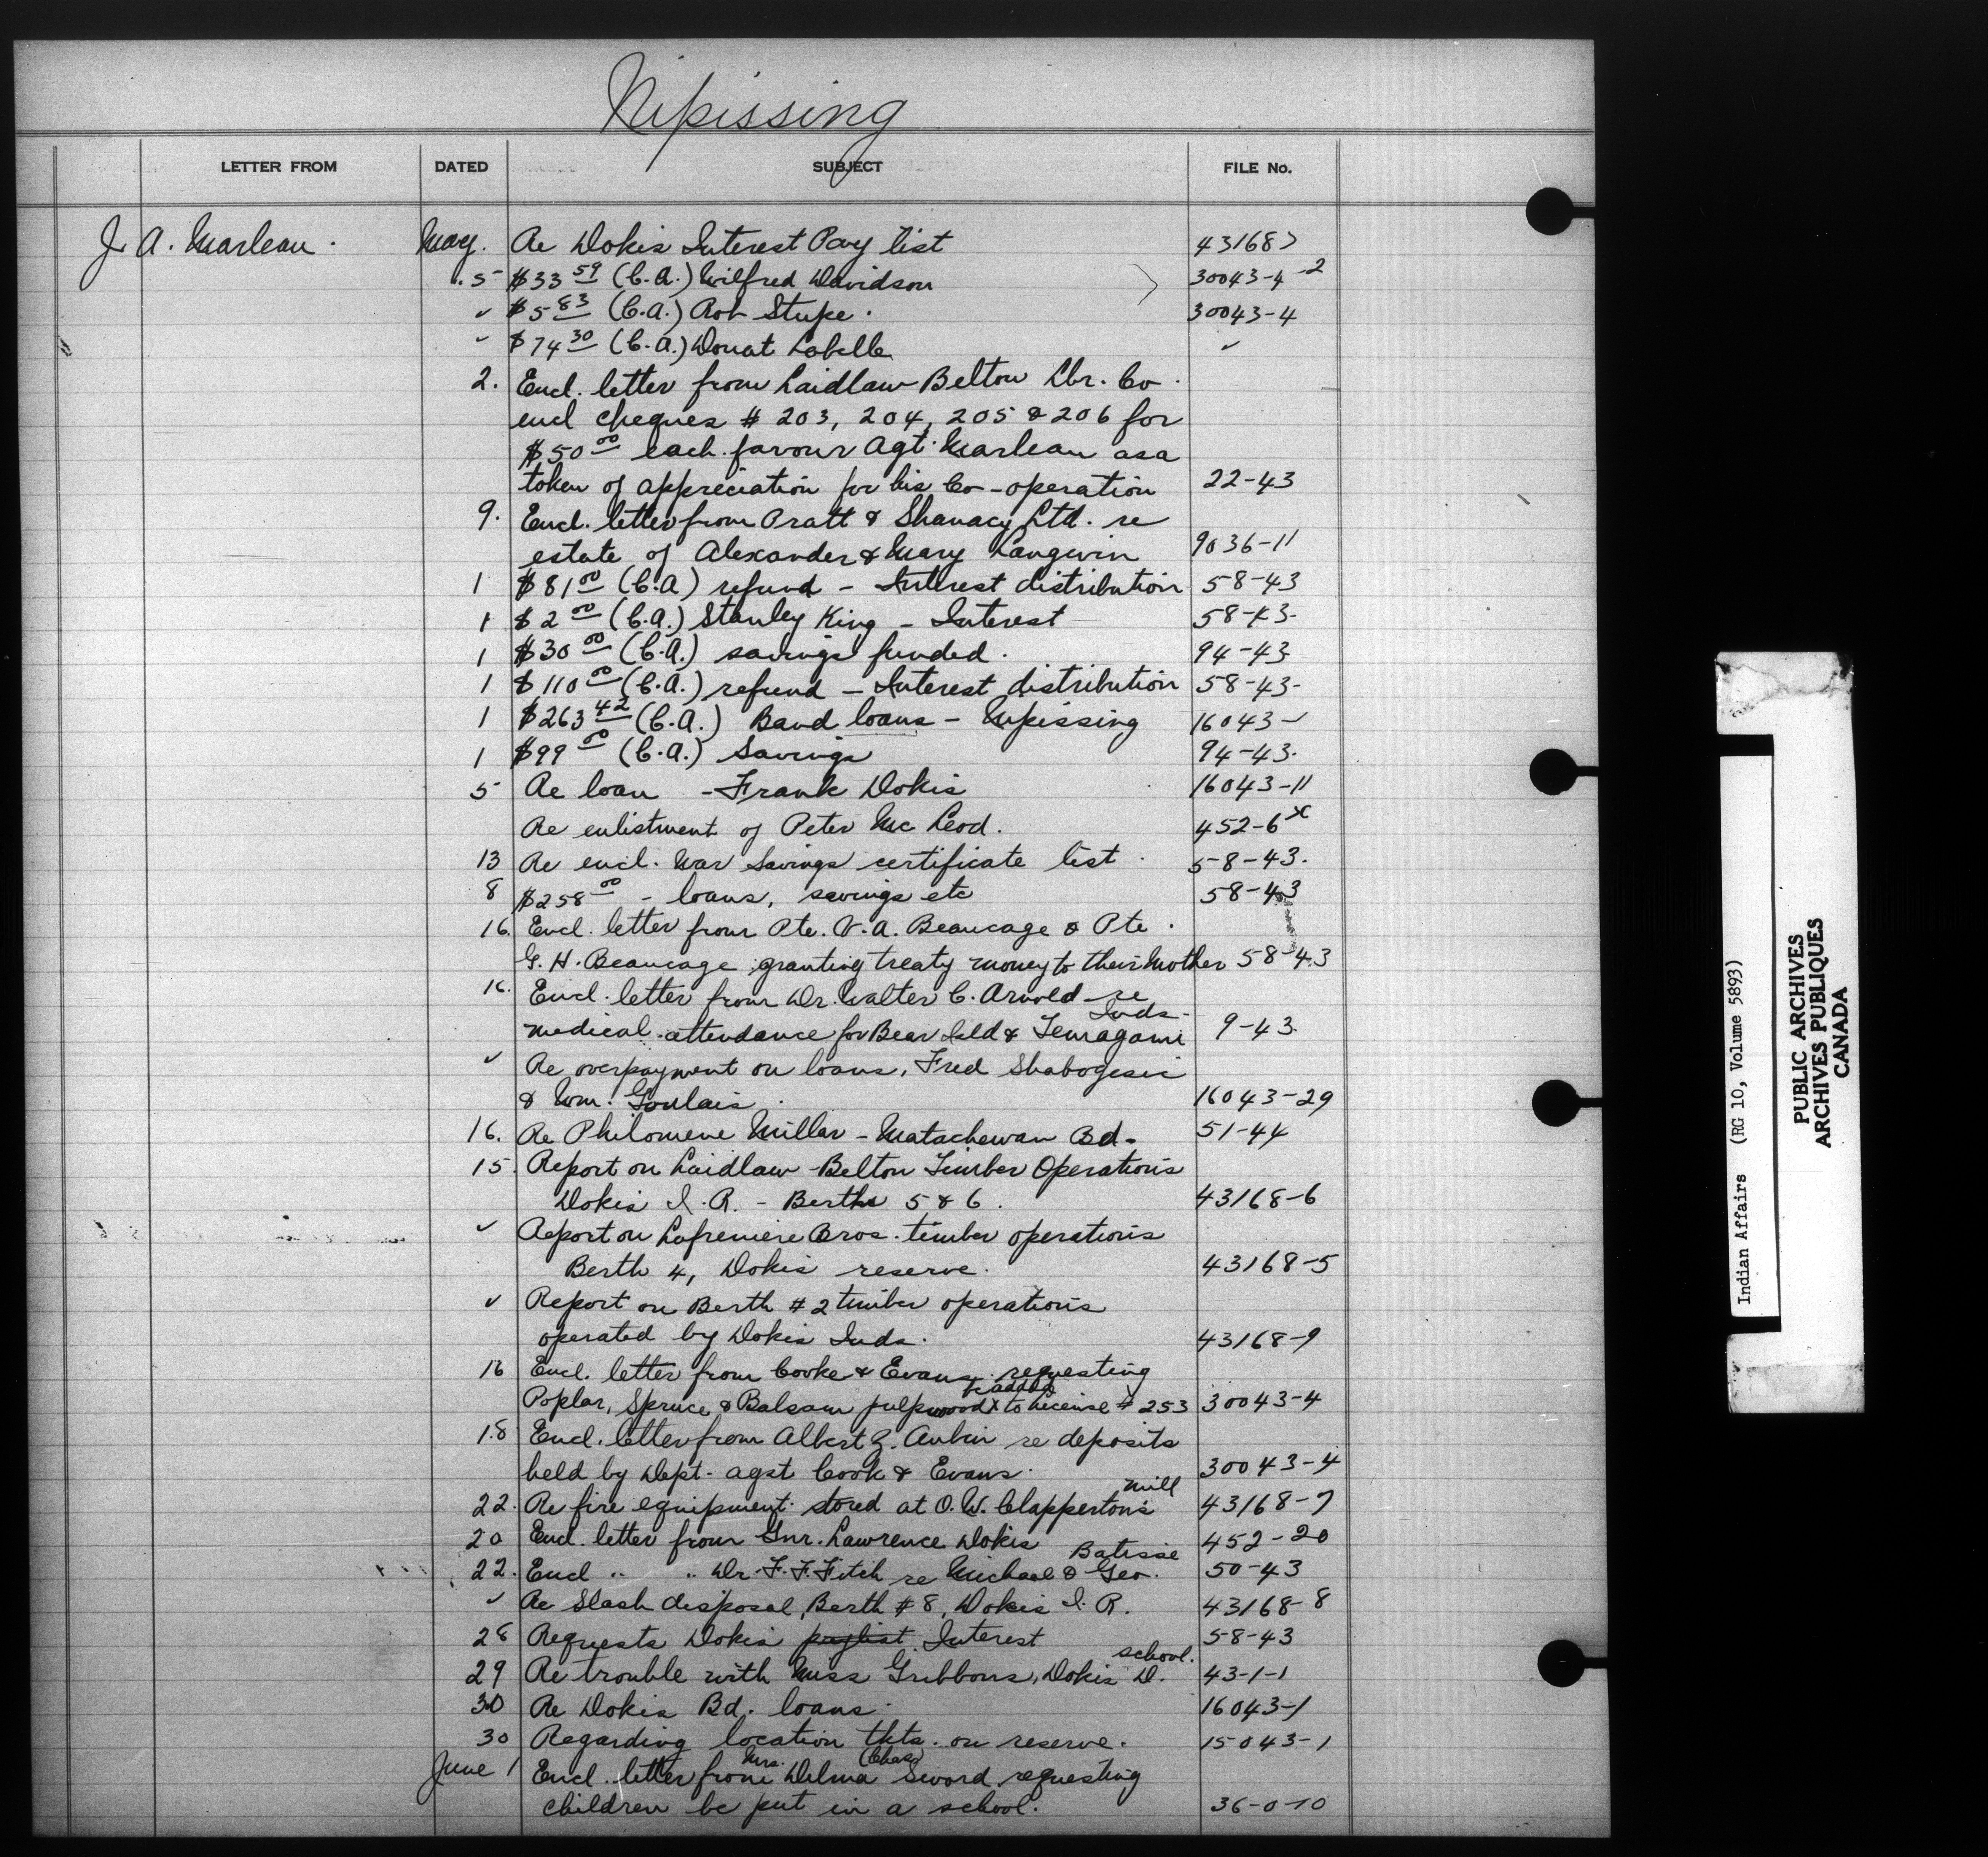 Nipissing
LETTER FROM DATED SUBJECT FILE No.
J. A. Marleau. May. Re Dokis Interest Pay list 43168>
5 $33 59 (C.A.) Wilfred Davidson > 30043-4-2
✓ $5 83 (C.A.) Rob Stupe. 30043-4
✓ $74 30 (C.A.) Donat Labelle ✓
2. Encl. letter from Laidlaw Belton Lbr. Co.
encl cheques # 203, 204, 205 & 206 for
$50 00 each favour Agt. Marleau as a
token of appreciation for his Co-operation 22-43
9. Encl. letter from Pratt & Shanacy Ltd. re
estate of Alexander & Mary Langevin 9036-11
1 $81 00 (C.A) refund - Interest distribution 58-43
1 $2 00 (C.A.) Stanley King - Interest 58-43.
1 $30 00 (C.A.) savings funded. 94-43
1 $110 00 (C.A.) refund - Interest distribution 58-43-
1 $263 42 (C.A.) Band loans - Nipissing 16043-1
1 $99 00 (C.A.) Savings 94-43.
5 Re loan - Frank Dokis 16043-11
Re enlistment of Peter Mc Leod. 452-6 x
13 Re encl. War Savings certificate list. 58-43.
8 $258 00 - loans, savings etc 58-43
16. Encl. letter from Pte. V. A. Beaucage & Pte.
G. H. Beaucage granting treaty money to their Mother 58-43
16. Encl. letter from Dr. Walter C. Arnold re
Inds-
medical attendance for Bear Isld & Temagami 9-43.
✓ Re overpayment on loans, Fred Shabogesic
& Wm. Goulais. 16043-29
16. Re Philomene Millar - Matachewan Bd. 51-44
15. Report on Laidlaw-Belton Timber Operations
Dokis I. R. - Berths 5 & 6. 43168-6
✓ Report on Lafreniere Bros. timber operations
Berth 4, Dokis reserve. 43168-5
✓ Report on Berth # 2 timber operations
operated by Dokis Inds. 43168-9
16 Encl. letter from Cooke & Evans requesting
be added
Poplar, Spruce & Balsam pulpwood x to License # 253 30043-4
18 Encl. letter from Albert Z. Aubin re deposits
held by Dept. agst Cook & Evans. 30043-4
mill
22. Re fire equipment stored at O. W. Clapperton's 43168-7
20 Encl. letter from Gnr. Lawrence Dokis 452-20
Batisse
22. Encl " " Dr. F. F. Fitch re Michael & Geo. 50-43
✓ Re Slash disposal, Berth # 8, Dokis I. R. 43168-8
28 Requests Dokis paylist Interest 58-43
school.
29 Re trouble with Miss Gribbons, Dokis D. 43-1-1
30 Re Dokis Bd. loans. 16043-1
30 Regarding location tkts. on reserve. 15043-1
Mrs. (Chas)
June 1 Encl. letter from Delma Sword requesting
children be put in a school. 36-0-10
Indian Affairs (RG 10, Volume 5893)
PUBLIC ARCHIVES
ARCHIVES PUBLIQUES
CANADA